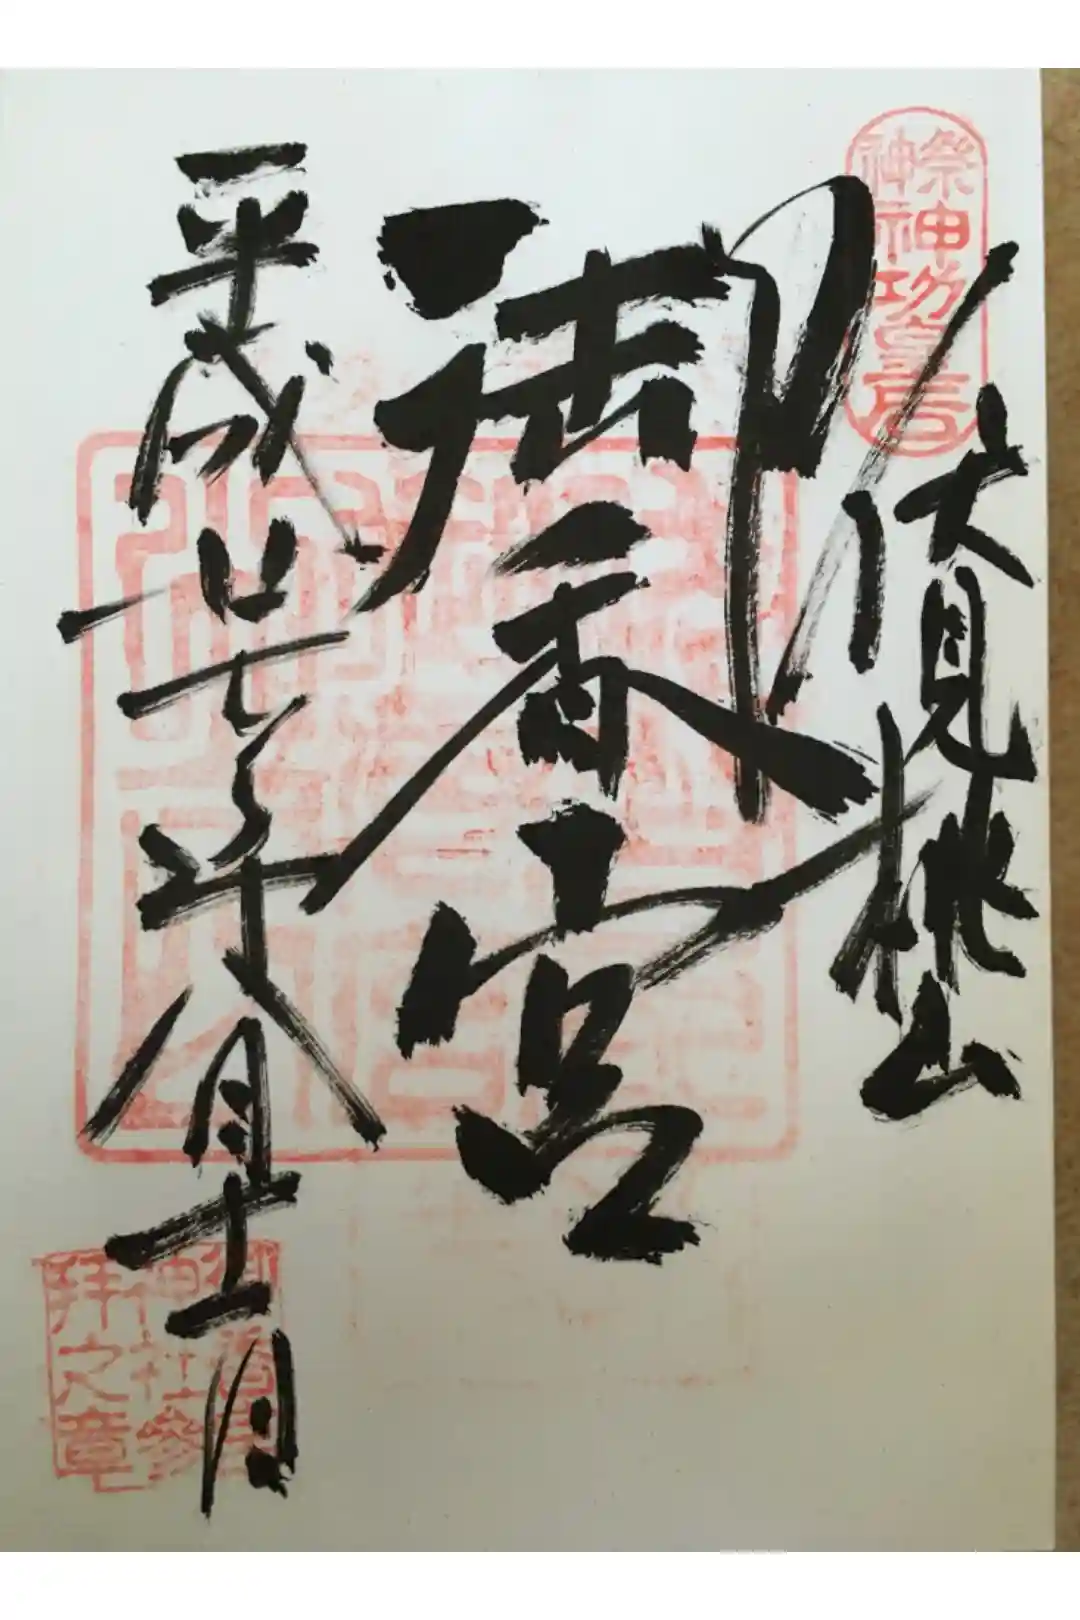 祭神
神功皇后
伏見桃山
御香宮
平成廿七年八月
御香宮
神社參
拜之章